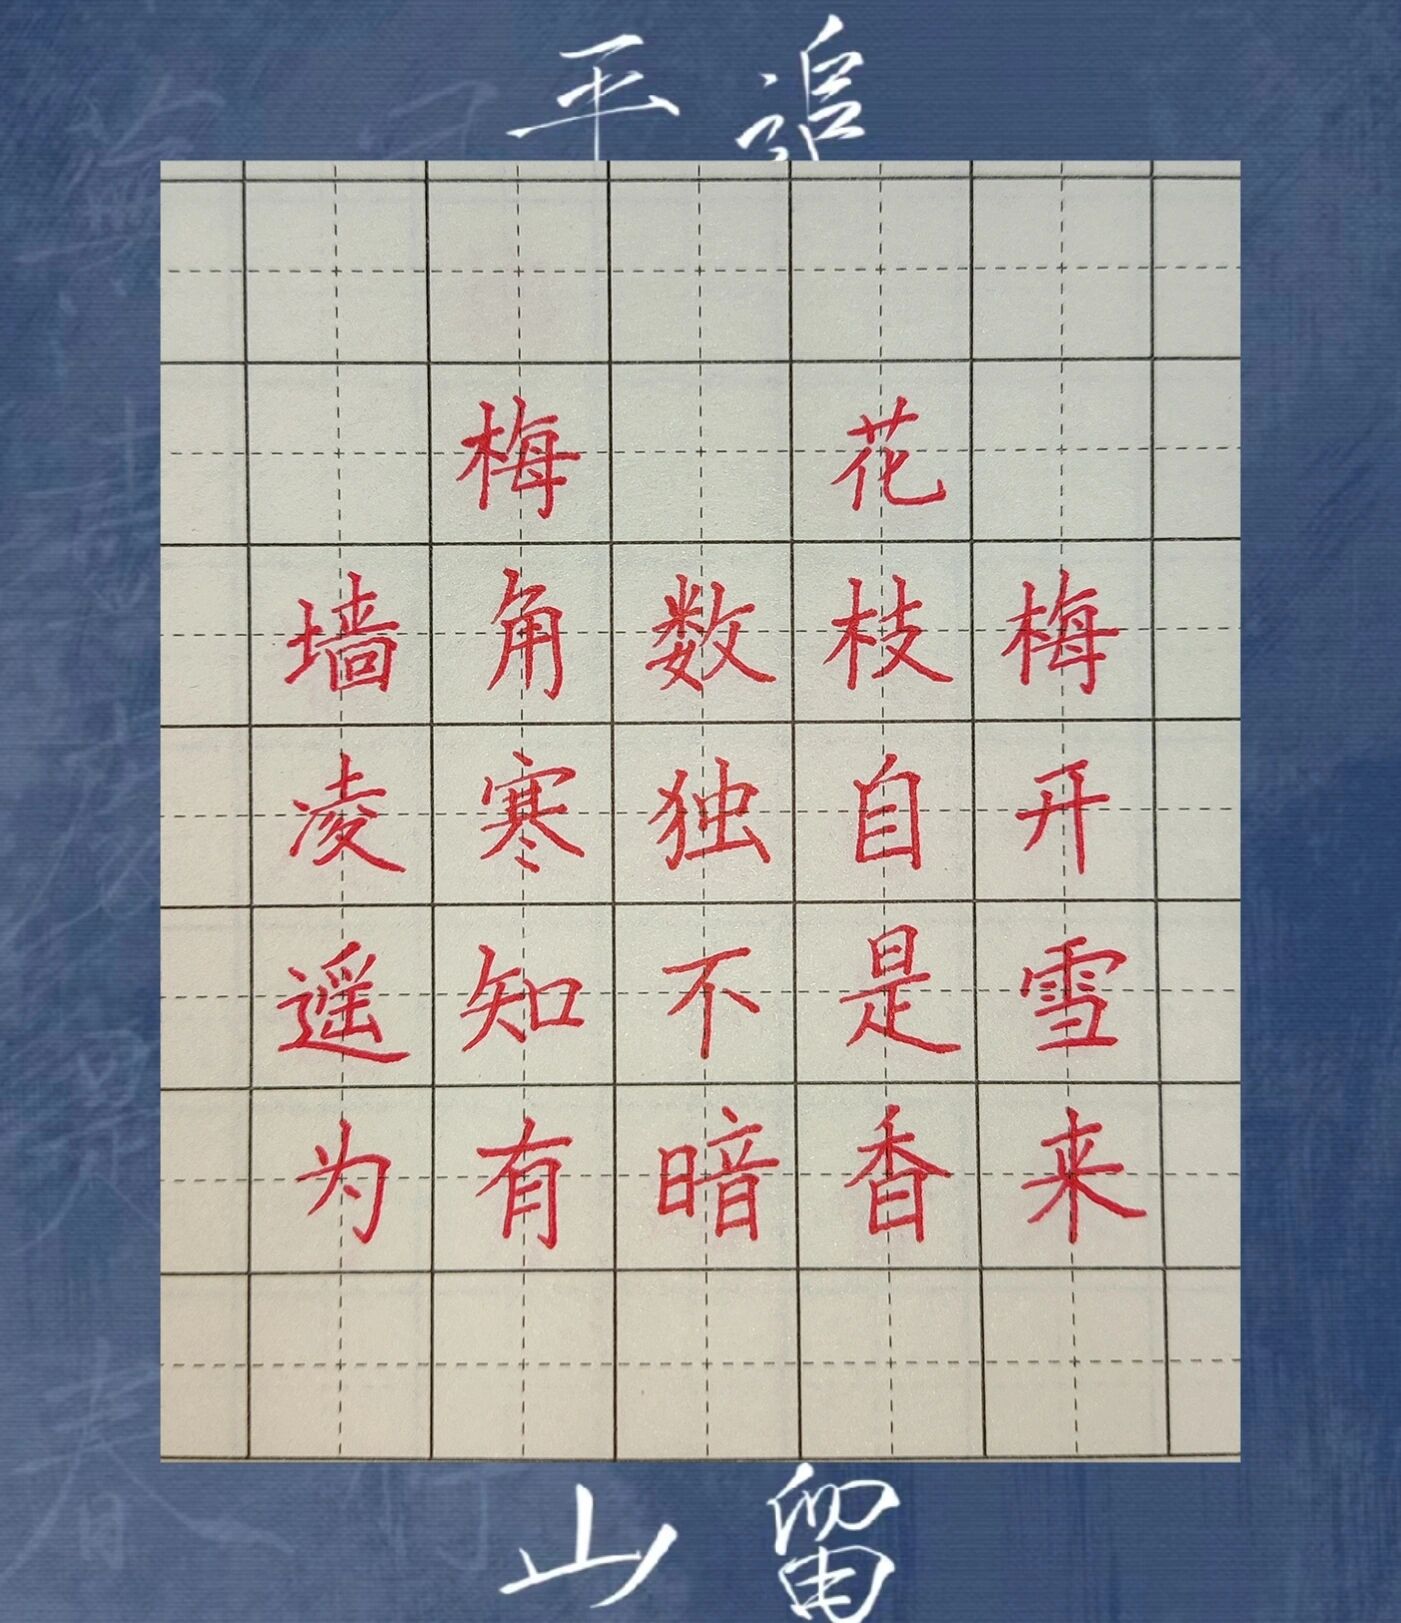 平 追
梅 花
墙角数枝梅
凌寒独自开
遥知不是雪
为有暗香来
山 留